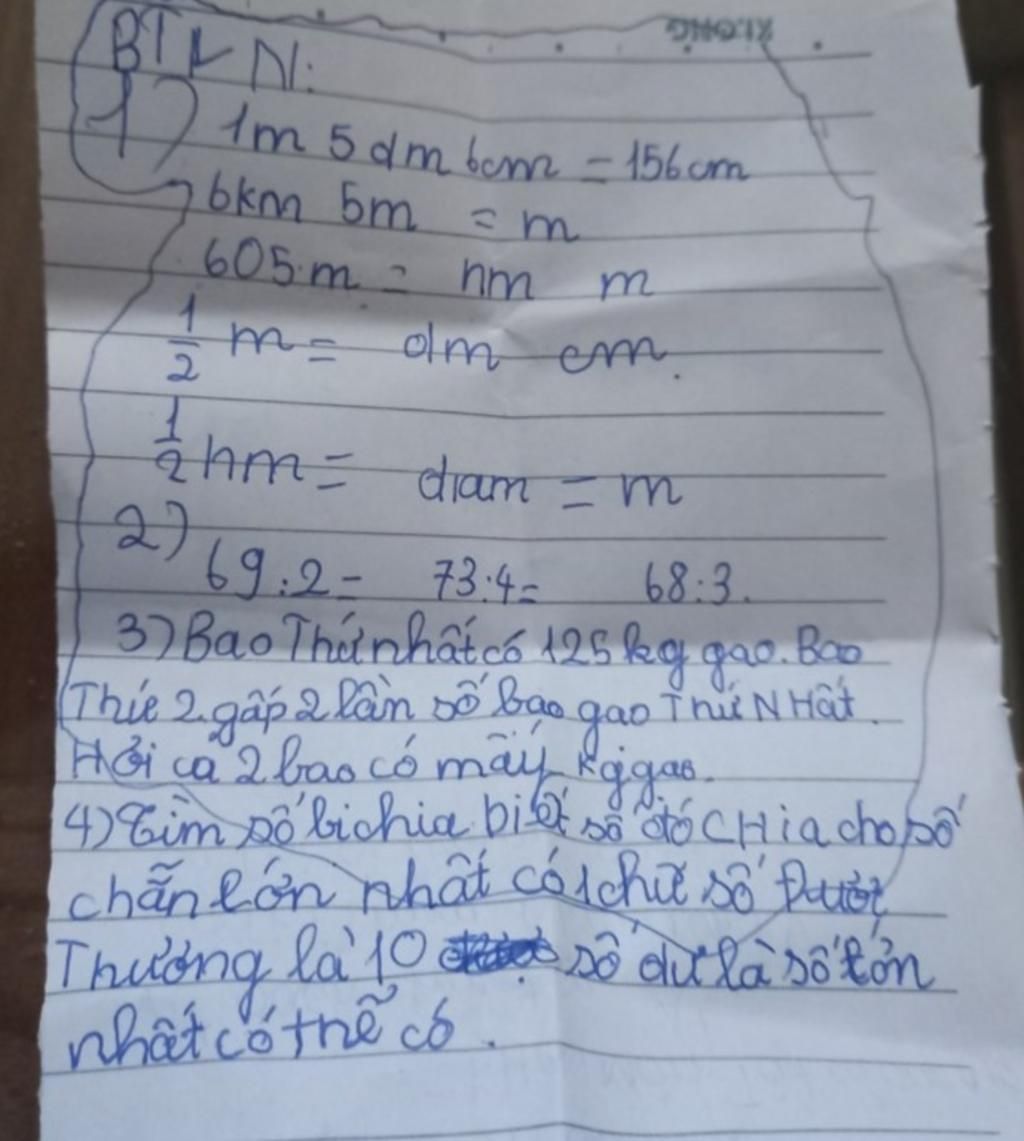 KLONG
BTVN:
1) 1m 5dm 6cm = 156cm
6km 5m = m
605m = hm m
1/2 m = dm cm.
1/2 hm = dam = m
2)
69:2= 73:4= 68:3.
3) Bao Thứ nhất có 125 kg gạo. Bao
Thứ 2 gấp 2 lần số bao gạo Thứ NHất.
Hỏi cả 2 bao có mấy kg gạo.
4) Tìm số bị chia biết số đó CHia cho số
chẵn lớn nhất có 1 chữ số Được
Thương là 10 số dư là số lớn
nhất có thể có.